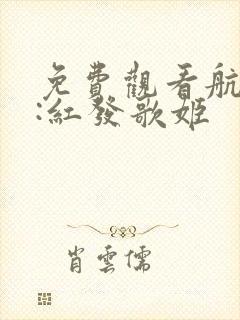 免費觀看航
:紅發歌姬
肖雲儒